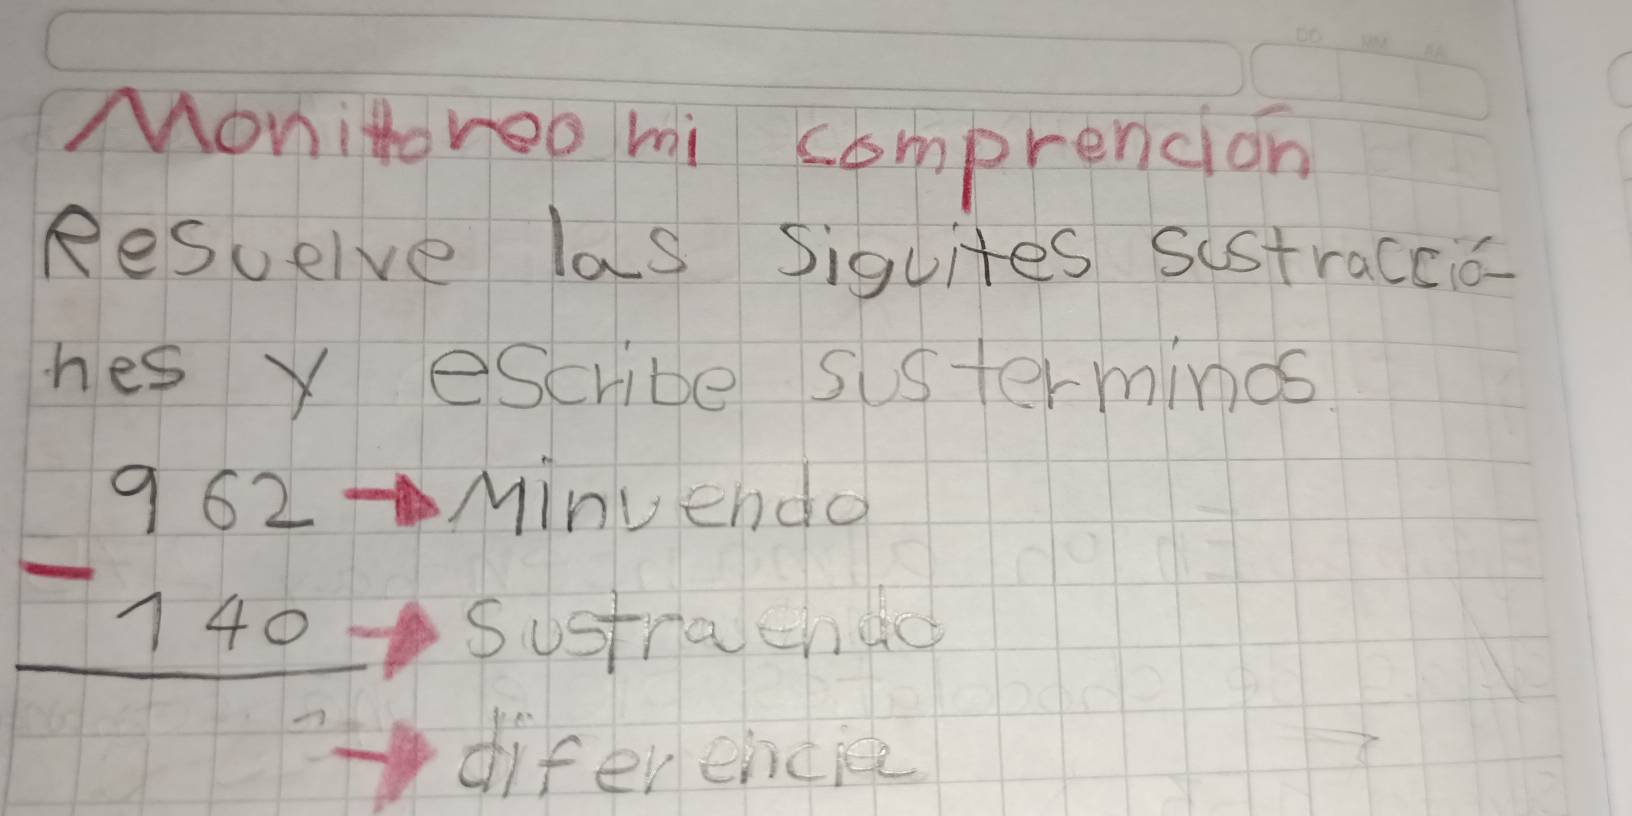 Monitoreo mi comprención
Resuelve las siguites sustracció-
nes y escribe sus terminos.
962 → Minuendo
- 140 → Sustraendo
→ diferencia